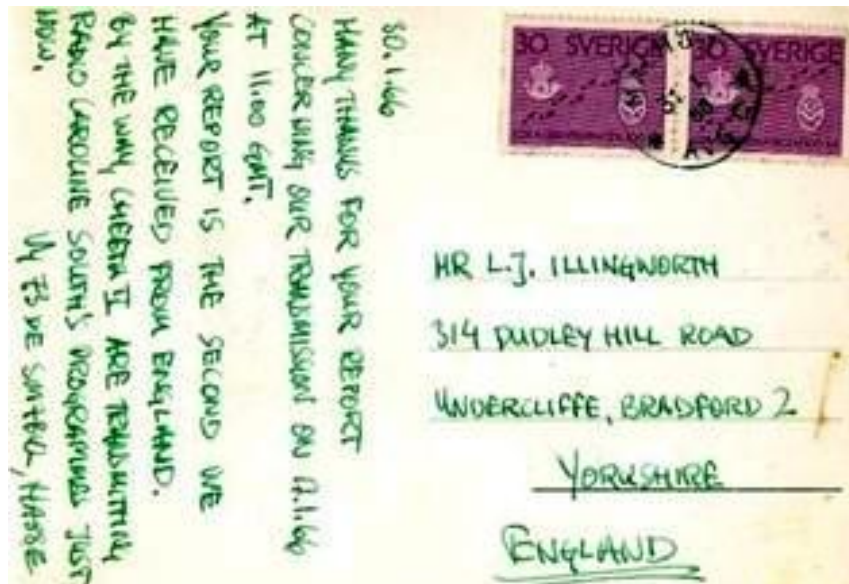 30.1.66
MANY THANKS FOR YOUR REPORT
CONCERNING OUR TRANSMISSION ON 17.1.66
AT 11.00 GMT.
YOUR REPORT IS THE SECOND WE
HAVE RECEIVED FROM ENGLAND.
BY THE WAY CHEETA II ARE TRANSMITTING
RADIO CAROLINE SOUTH'S PROGRAMMES JUST
NOW.
VY 73 DE
30 SVERIGE
30 SVERIGE
MR L.J. ILLINGWORTH
314 DUDLEY HILL ROAD
UNDERCLIFFE, BRADFORD 2
YORKSHIRE
ENGLAND